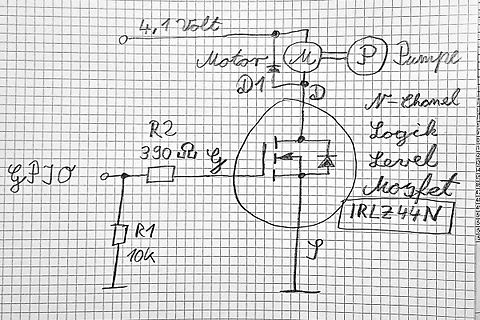 4,1 Volt
Motor M P Pumpe
D1
D
N-Chanel
Logik
Level
Mosfet
IRLZ44N
R2
390 Ω G
GPIO
R1
10k
S